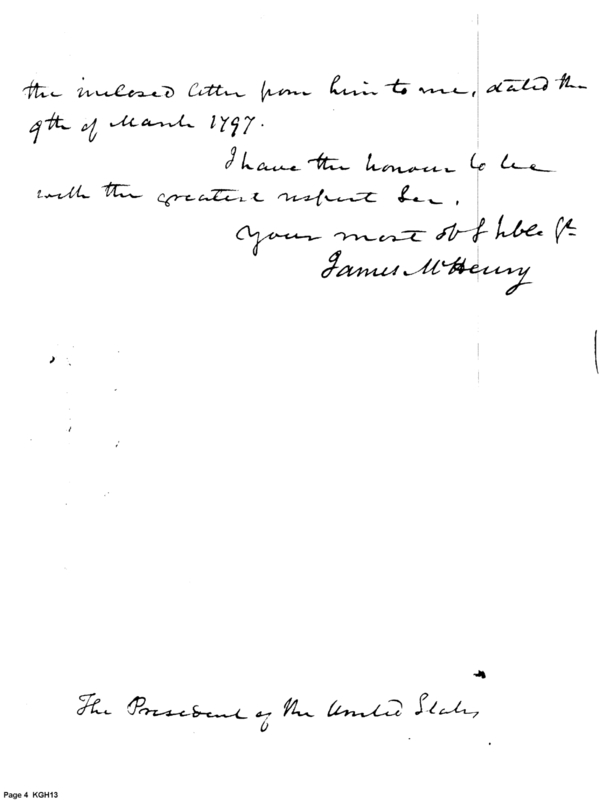 the inclosed letter from him to me, dated the
9th of March 1797.
I have the honour to be
with the greatest respect Sir,
Your most obt hble St
James McHenry
The President of the United States
Page 4 KGH13